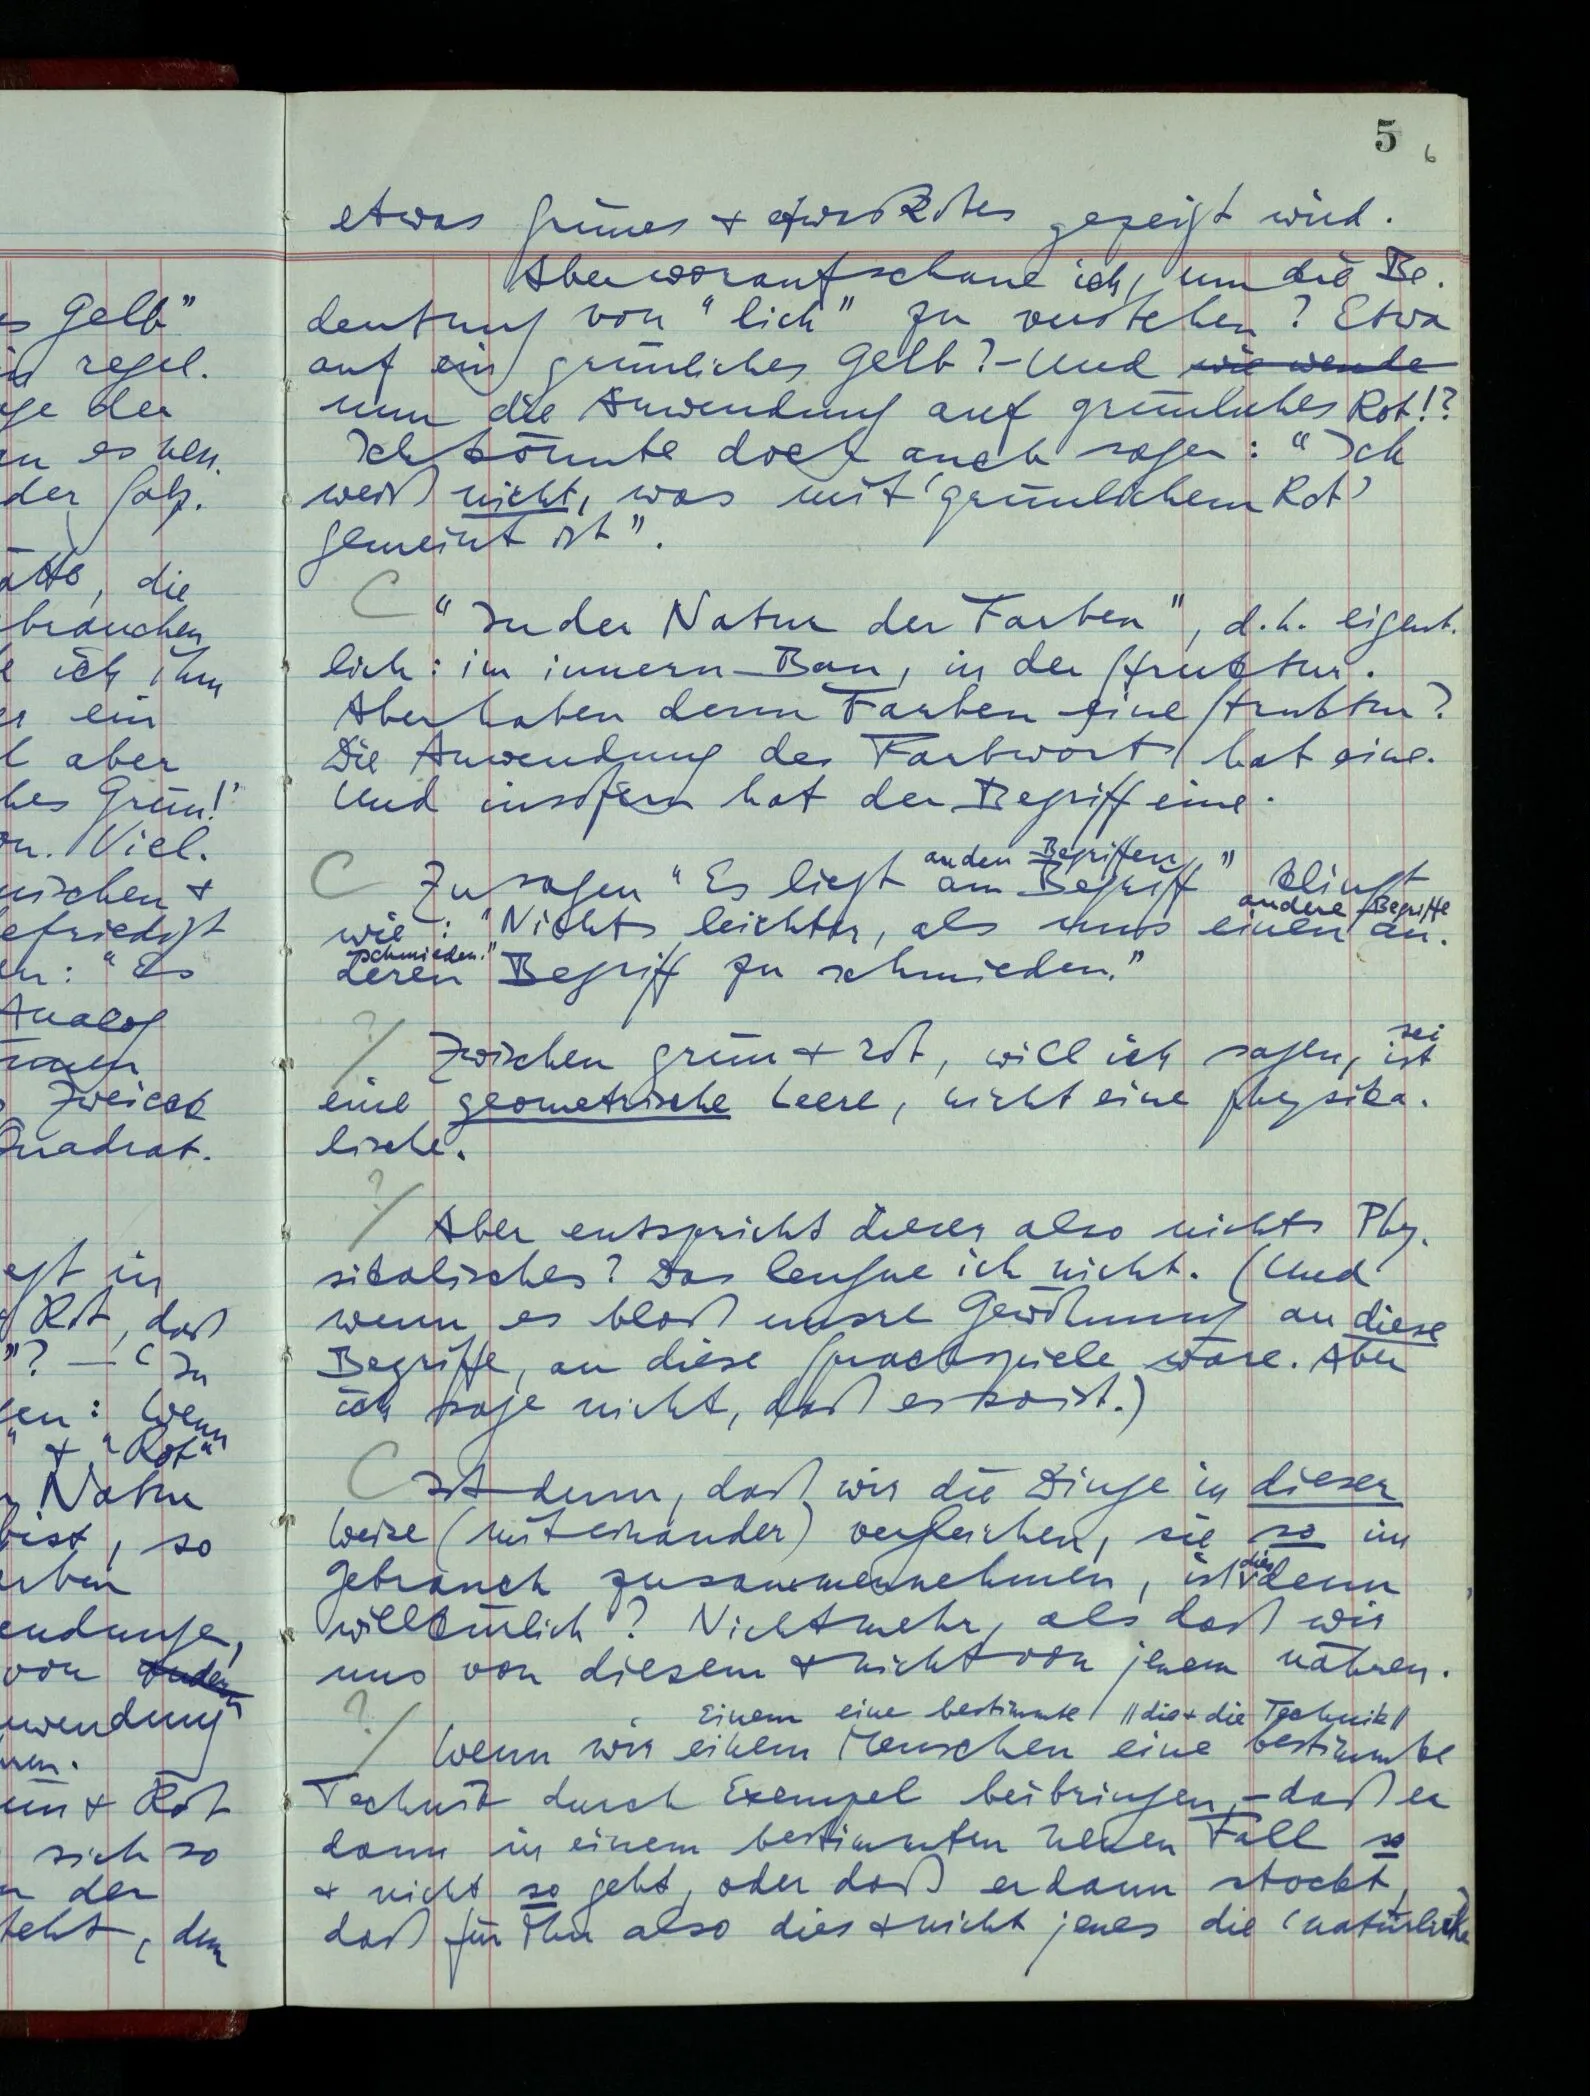 5 6
etwas grünes & etwas Rotes gezeigt wird.
Aber worauf schaue ich, um die Be-
deutung von "lich" zu verstehen? Etwa
auf ein grünliches Gelb? – Und wie wende
nun die Anwendung auf grünliches Rot!?
Ich könnte doch auch sagen: "Ich
weiß nicht, was mit 'grünlichem Rot'
gemeint ist".
C "In der Natur der Farben", d.h. eigent-
lich: im innern Bau, in der Struktur.
Aber haben denn Farben eine Struktur?
Die Anwendung des Farbworts hat eine.
Und insofern hat der Begriff eine.
an den Begriffen
C Zu sagen "Es liegt am Begriff" klingt
andere Begriffe
wie: "Nichts leichter, als uns einen an-
schmieden."
deren Begriff zu schmieden."
sei
?/ Zwischen grün & rot, will ich sagen, ist
eine geometrische Leere, nicht eine physika-
lische.
?/ Aber entspricht dieser also nichts Phy-
sikalisches? Das leugne ich nicht. (Und
wenn es bloß unsre Gewöhnung an diese
Begriffe, an diese Sprachspiele wäre. Aber
ich sage nicht, daß es so ist.)
C Ist denn, daß wir die Dinge in dieser
Weise (miteinander) vergleichen, sie so im
dies
Gebrauch zusammennehmen, ist denn
willkürlich? Nicht mehr, als daß wir
uns von diesem & nicht von jenem nähren.
Einem eine bestimmte // die & die Technik //
?/ Wenn wir einem Menschen eine bestimmte
Technik durch Exempel beibringen, – daß er
dann in einem bestimmten neuen Fall so
& nicht so geht, oder daß er dann stockt,
daß für ihn also dies & nicht jenes die 'natürliche
Gelb"
regel.
der
es
der
die
brauchen
ich ihm
ein
aber
Grün!'
Viel-
&
efriedigt
: "Es
Analog
Zweieck
Quadrat.
in
Rot, daß
"? – "In
: Wenn
" & "Rot"
Natur
, so
von
&  Rot
sich so
der
, dem